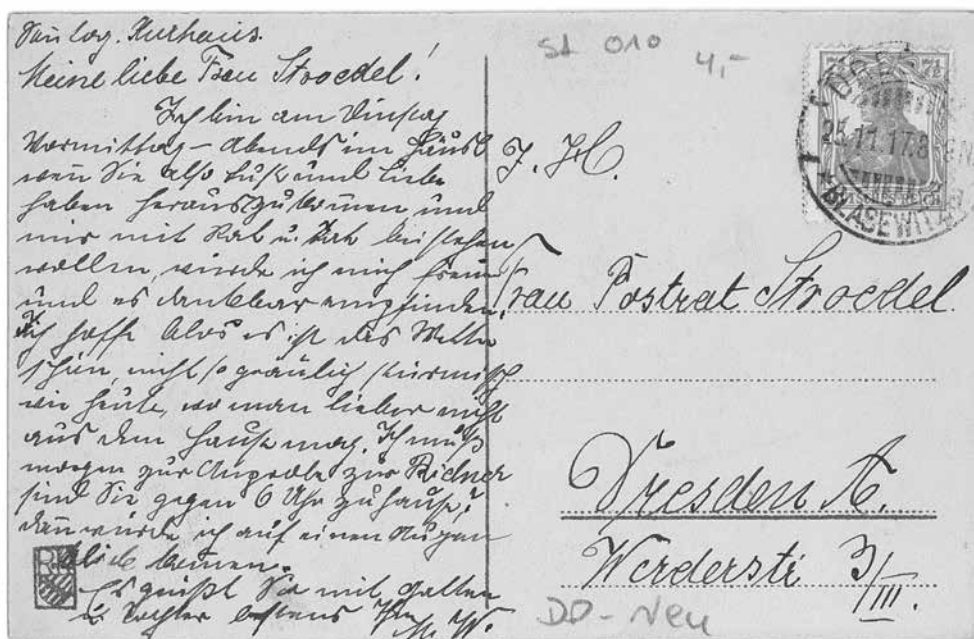 Sonntag. Kurhaus.
Meine liebe Frau Stroedel!
Ich bin am Dinstag
Vormittag – Abends im Hause
wenn Sie also Lust und Liebe
haben herauszukommen und
mir mit Rat u. Tat beistehen
wollen, würde ich mich freuen
und es dankbar empfinden.
Ich hoffe blos es ist das Wetter
schön, nicht so gräulich stürmisch
wie heute, wo man lieber nicht
aus dem Hause mag. Ich muß
morgen zur Anprobe zur
sind Sie gegen 6 Uhr zu Hause?
dann würde ich auf einen Augen
blick kommen.
Es grüßt Sie mit Gatten
u Tochter bestens Ihre M. W.
St 010
4,-
7½
DRESDEN
25.11.17.8-9N
*BLASEWITZ
DEUTSCHES REICH
Frau Postrat Stroedel.
Dresden A.
Werderstr 3/III.
DD-Neu